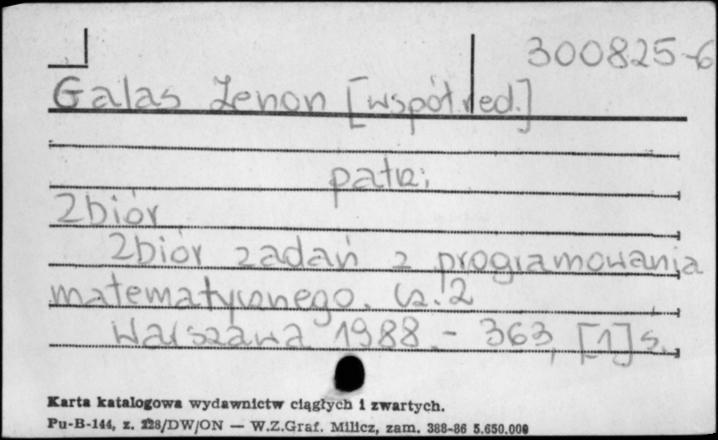 300825-6
Galas Zenon [współred.]
patrz:
Zbiór
Zbiór zadań z programowania
matematycznego. Cz. 2
Warszawa 1988. - 363, [1] s.
Karta katalogowa wydawnictw ciągłych i zwartych.
Pu-B-144, z. 228/DW/ON — W.Z.Graf. Milicz, zam. 388-86 5.650.000